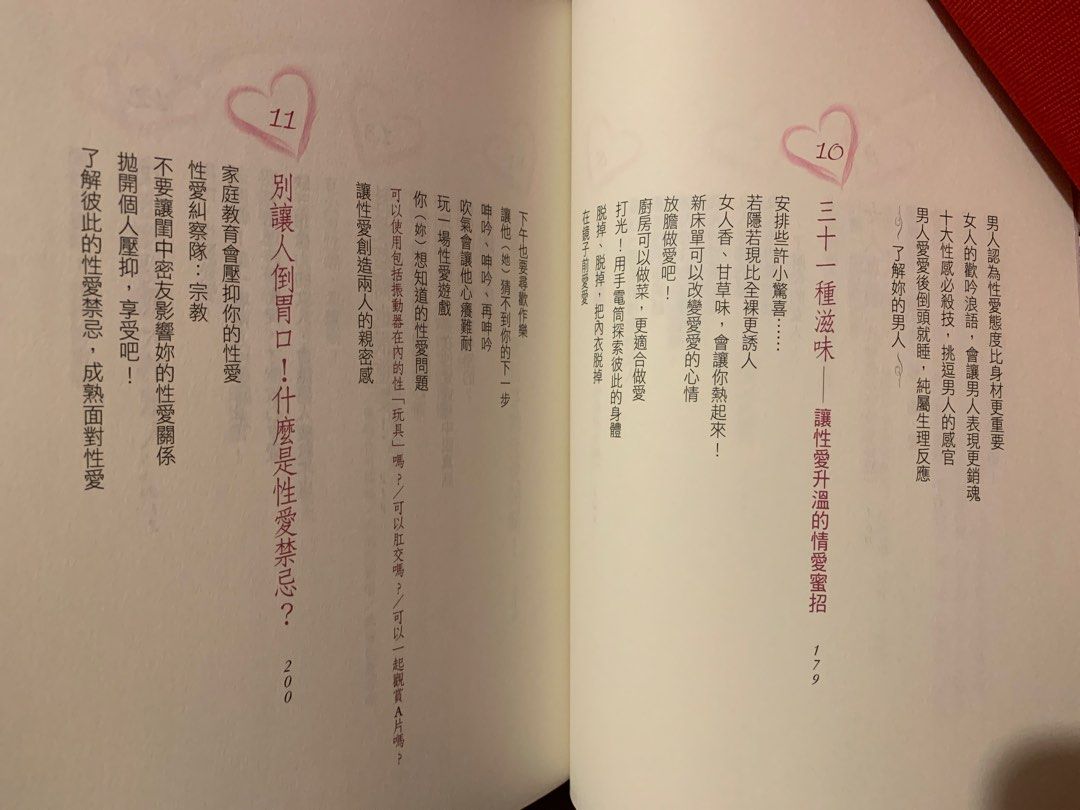 男人認為性愛態度比身材更重要
女人的歡吟浪語，會讓男人表現更銷魂
十大性感必殺技，挑逗男人的感官
男人愛愛後倒頭就睡，純屬生理反應
了解妳的男人
10
三十一種滋味——讓性愛升溫的情愛蜜招 179
安排些許小驚喜……
若隱若現比全裸更誘人
女人香、甘草味，會讓你熱起來！
新床單可以改變愛愛的心情
放膽做愛吧！
廚房可以做菜，更適合做愛
打光！用手電筒探索彼此的身體
脫掉、脫掉，把內衣脫掉
在鏡子前愛愛
下午也要尋歡作樂
讓他（她）猜不到你的下一步
呻吟、呻吟、再呻吟
吹氣會讓他心癢難耐
玩一場性愛遊戲
你（妳）想知道的性愛問題
可以使用包括振動器在內的性「玩具」嗎？／可以肛交嗎？／可以一起觀賞A片嗎？
讓性愛創造兩人的親密感
11
別讓人倒胃口！什麼是性愛禁忌？ 200
家庭教育會壓抑你的性愛
性愛糾察隊：宗教
不要讓閨中密友影響妳的性愛關係
拋開個人壓抑，享受吧！
了解彼此的性愛禁忌，成熟面對性愛